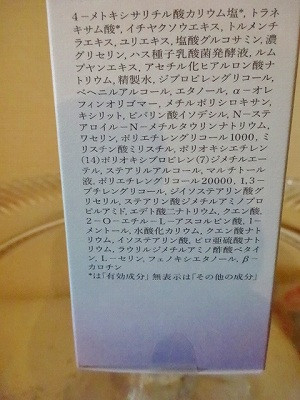 4-メトキシサリチル酸カリウム塩*，トラネ
キサム酸*，イチヤクソウエキス，トルメンチ
ラエキス，ユリエキス，塩酸グルコサミン，濃
グリセリン，ハス種子乳酸菌発酵液，ルム
プヤンエキス，アセチル化ヒアルロン酸ナ
トリウム，精製水，ジプロピレングリコール，
ベヘニルアルコール，エタノール，α-オレ
フィンオリゴマー，メチルポリシロキサン，
キシリット，ピバリン酸イソデシル，N-ステ
アロイル-N-メチルタウリンナトリウム，
ワセリン，ポリエチレングリコール1000，ミ
リスチン酸ミリスチル，ポリオキシエチレン
(14)ポリオキシプロピレン(7)ジメチルエー
テル，ステアリルアルコール，マルチトール
液，ポリエチレングリコール20000，1，3-
ブチレングリコール，ジイソステアリン酸グ
リセリル，ステアリン酸ジメチルアミノプロ
ピルアミド，エデト酸二ナトリウム，クエン酸，
2-O-エチル-L-アスコルビン酸，l-
メントール，水酸化カリウム，クエン酸ナト
リウム，イソステアリン酸，ピロ亜硫酸ナト
リウム，ラウリルジメチルアミノ酢酸ベタイ
ン，L-セリン，フェノキシエタノール，β-
カロチン
*は「有効成分」無表示は「その他の成分」